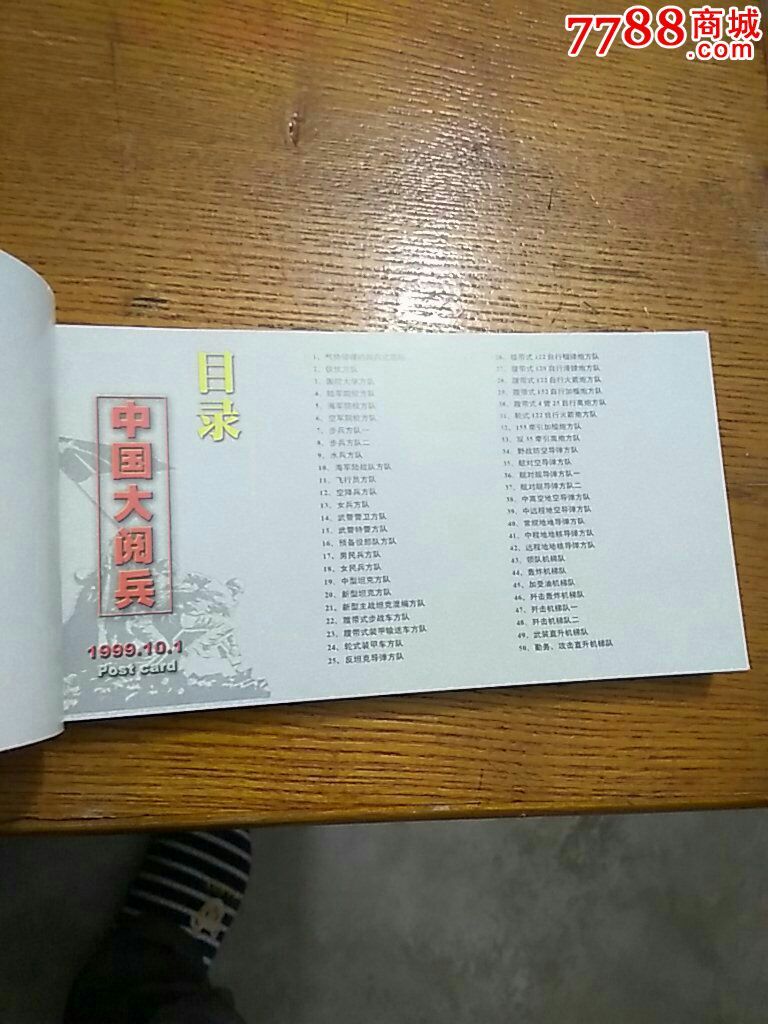 7788商城
.com
目录
中国大阅兵
1999.10.1
Post card
2、仪仗方队
3、国防大学方队
4、陆军院校方队
5、海军院校方队
6、空军院校方队
7、步兵方队一
8、步兵方队二
9、水兵方队
10、海军陆战队方队
11、飞行员方队
12、空降兵方队
13、女兵方队
14、武警警卫方队
15、武警特警方队
16、预备役部队方队
17、男民兵方队
18、女民兵方队
19、中型坦克方队
20、新型坦克方队
21、新型主战坦克混编方队
22、履带式步战车方队
23、履带式装甲输送车方队
24、轮式装甲车方队
25、反坦克导弹方队
26、履带式122自行榴弹炮方队
27、履带式120自行滑膛炮方队
28、履带式122自行火箭炮方队
29、履带式152自行加榴炮方队
30、履带式4管25自行高炮方队
31、轮式122自行火箭炮方队
32、155牵引加榴炮方队
33、双35牵引高炮方队
34、野战防空导弹方队
35、舰对空导弹方队
36、舰对舰导弹方队一
37、舰对舰导弹方队二
38、中高空地空导弹方队
39、中远程地空导弹方队
40、常规地地导弹方队
41、中程地地核导弹方队
42、远程地地核导弹方队
43、领队机梯队
44、轰炸机梯队
45、加受油机梯队
46、歼击轰炸机梯队
47、歼击机梯队一
48、歼击机梯队二
49、武装直升机梯队
50、勤务、攻击直升机梯队